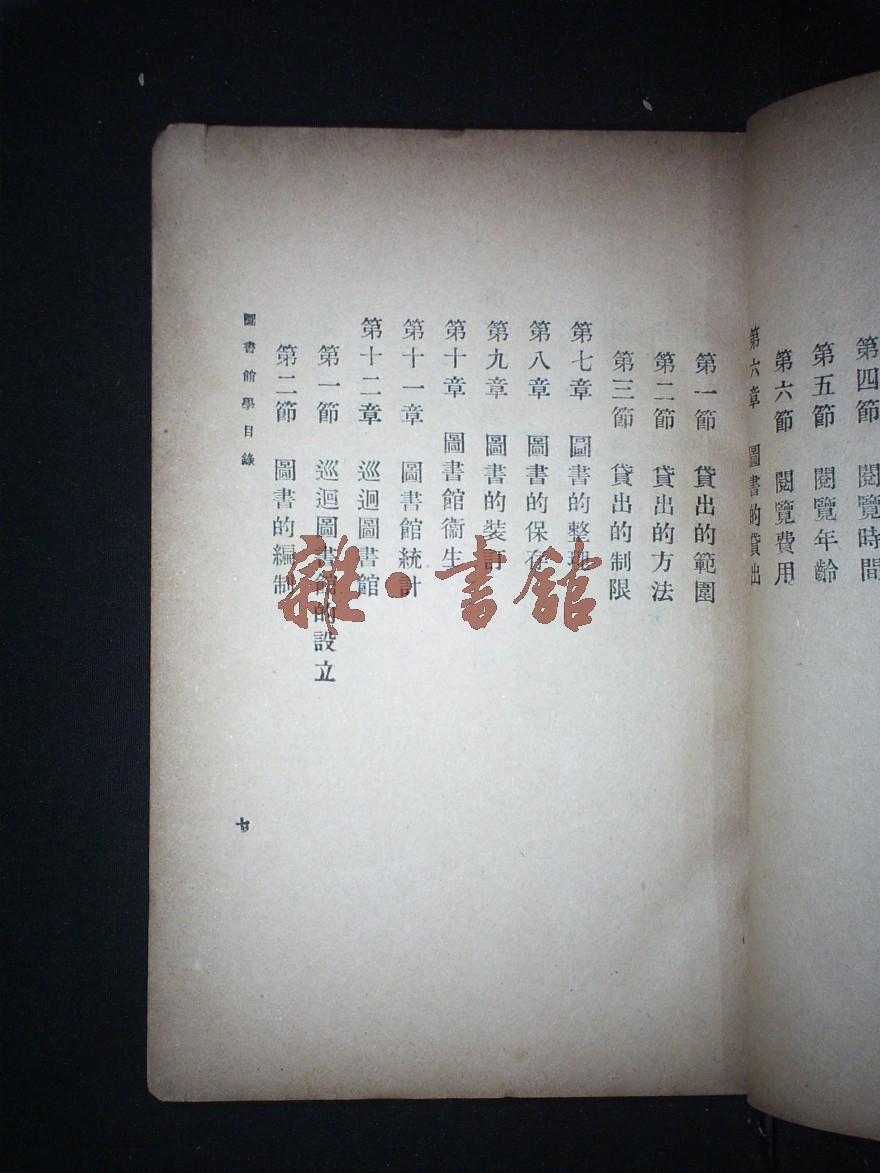 第四節　閱覽時間
第五節　閱覽年齡
第六節　閱覽費用
第六章　圖書的貸出
第一節　貸出的範圍
第二節　貸出的方法
第三節　貸出的制限
第七章　圖書的整理
第八章　圖書的保存
第九章　圖書的裝訂
第十章　圖書館衞生
第十一章　圖書館統計
第十二章　巡迴圖書館
第一節　巡迴圖書館的設立
第二節　圖書的編制
圖書館學目錄
雜·書館